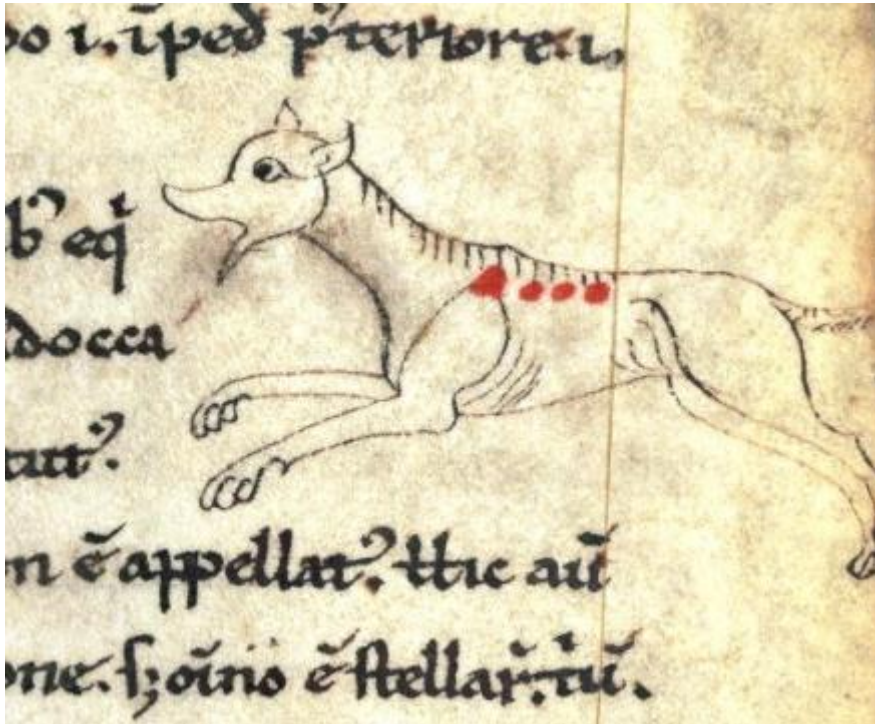 bo i. īped p̄teriore. i.
b̓ eq̇
docca
tut̓.
n ē appellat̓. hic aū
one. sꝫ oīno ē stellar̄. t̄iū.